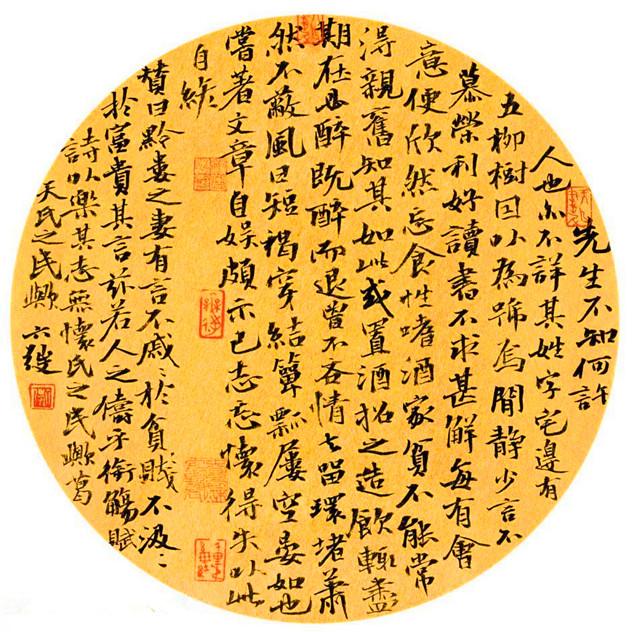 先生不知何許
人也亦不詳其姓字宅邊有
五柳樹因以為號焉閒靜少言不
慕榮利好讀書不求甚解每有會
意便欣然忘食性嗜酒家貧不能常
得親舊知其如此或置酒招之造飲輒盡
期在必醉既醉而退曾不吝情去留環堵蕭
然不蔽風日短褐穿結簞瓢屢空晏如也
嘗著文章自娛頗示己志忘懷得失以此
自終
贊曰黔婁之妻有言不戚〻於貧賤不汲〻
於富貴其言茲若人之儔乎銜觴賦
詩以樂其志無懷氏之民歟葛
天氏之民歟